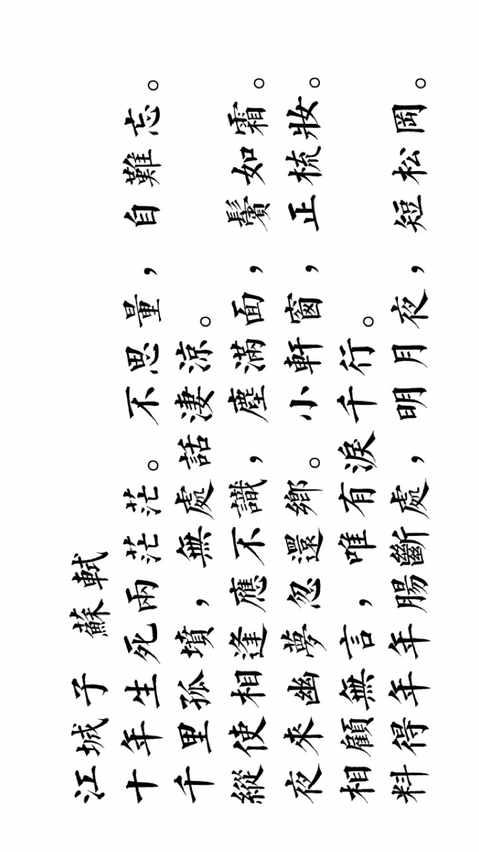 江城子 蘇軾
十年生死兩茫茫。不思量，自難忘。
千里孤墳，無處話淒涼。
縱使相逢應不識，塵滿面，鬢如霜。
夜來幽夢忽還鄉。小軒窗，正梳妝。
相顧無言，唯有淚千行。
料得年年腸斷處，明月夜，短松岡。